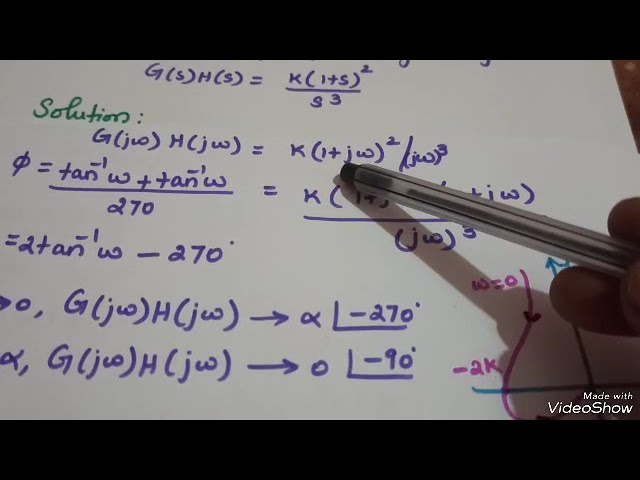 G(s)H(s) = K(1+s)² / s³
Solution:
G(jω) H(jω) = K(1+jω)²/(jω)³
φ = tan⁻¹ω + tan⁻¹ω / 270 = K(1+j +jω) / (jω)³
= 2tan⁻¹ω − 270°
→0, G(jω)H(jω) → α ∠−270°
α, G(jω)H(jω) → 0 ∠−90°
ω=0
−2K
Made with
VideoShow